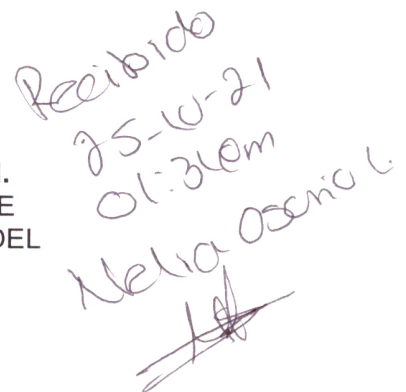 Recibido
25-10-21
Nelia Osorio L.
E
DEL